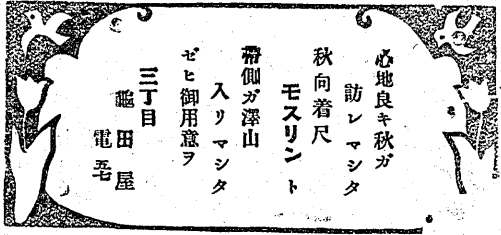 心地良キ秋ガ
訪レマシタ
秋向着尺
モスリント
帶側ガ澤山
入リマシタ
ゼヒ御用意ヲ
三丁目
龜田屋
電五七